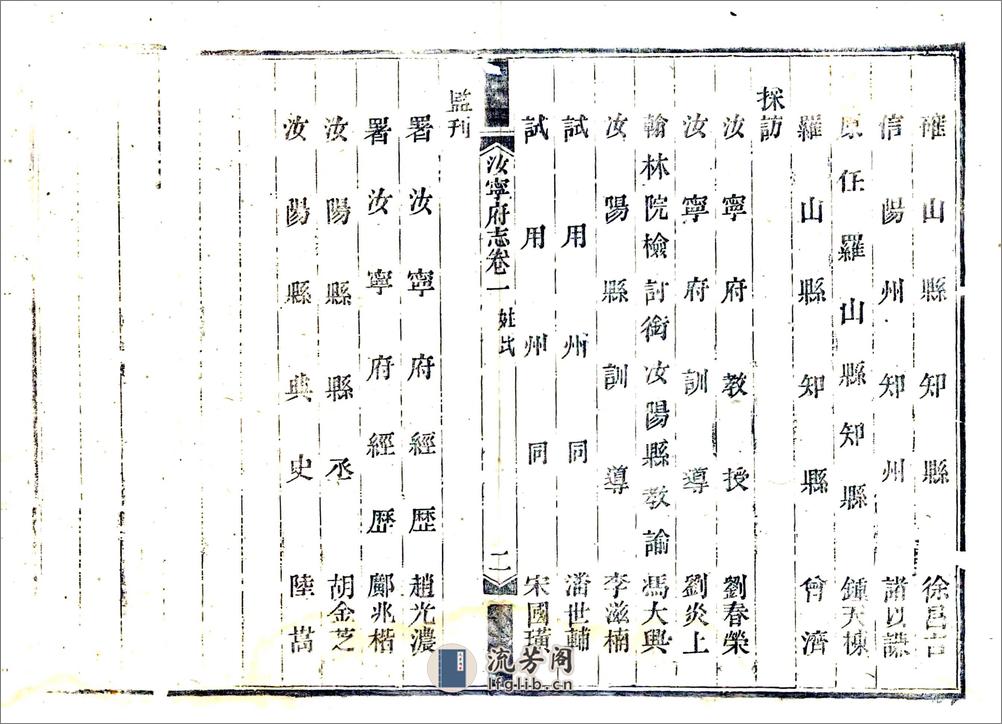 確山縣知縣 徐
信陽州知州 諸以謙
原任羅山縣知縣 鍾天棟
羅山縣知縣 曾濟
採訪
汝寧府教授 劉春榮
汝寧府訓導 劉炎上
翰林院檢討銜汝陽縣教諭 馮大興
汝陽縣訓導 李滋楠
試用州同 潘世輔
試用州同 宋國璜
汝寧府志卷一 姓氏 二
監刊
署汝寧府經歷 趙光濃
署汝寧府經歷 鄺兆楷
汝陽縣縣丞 胡金芝
汝陽縣典史 陸
流芳阁
lfglib.cn